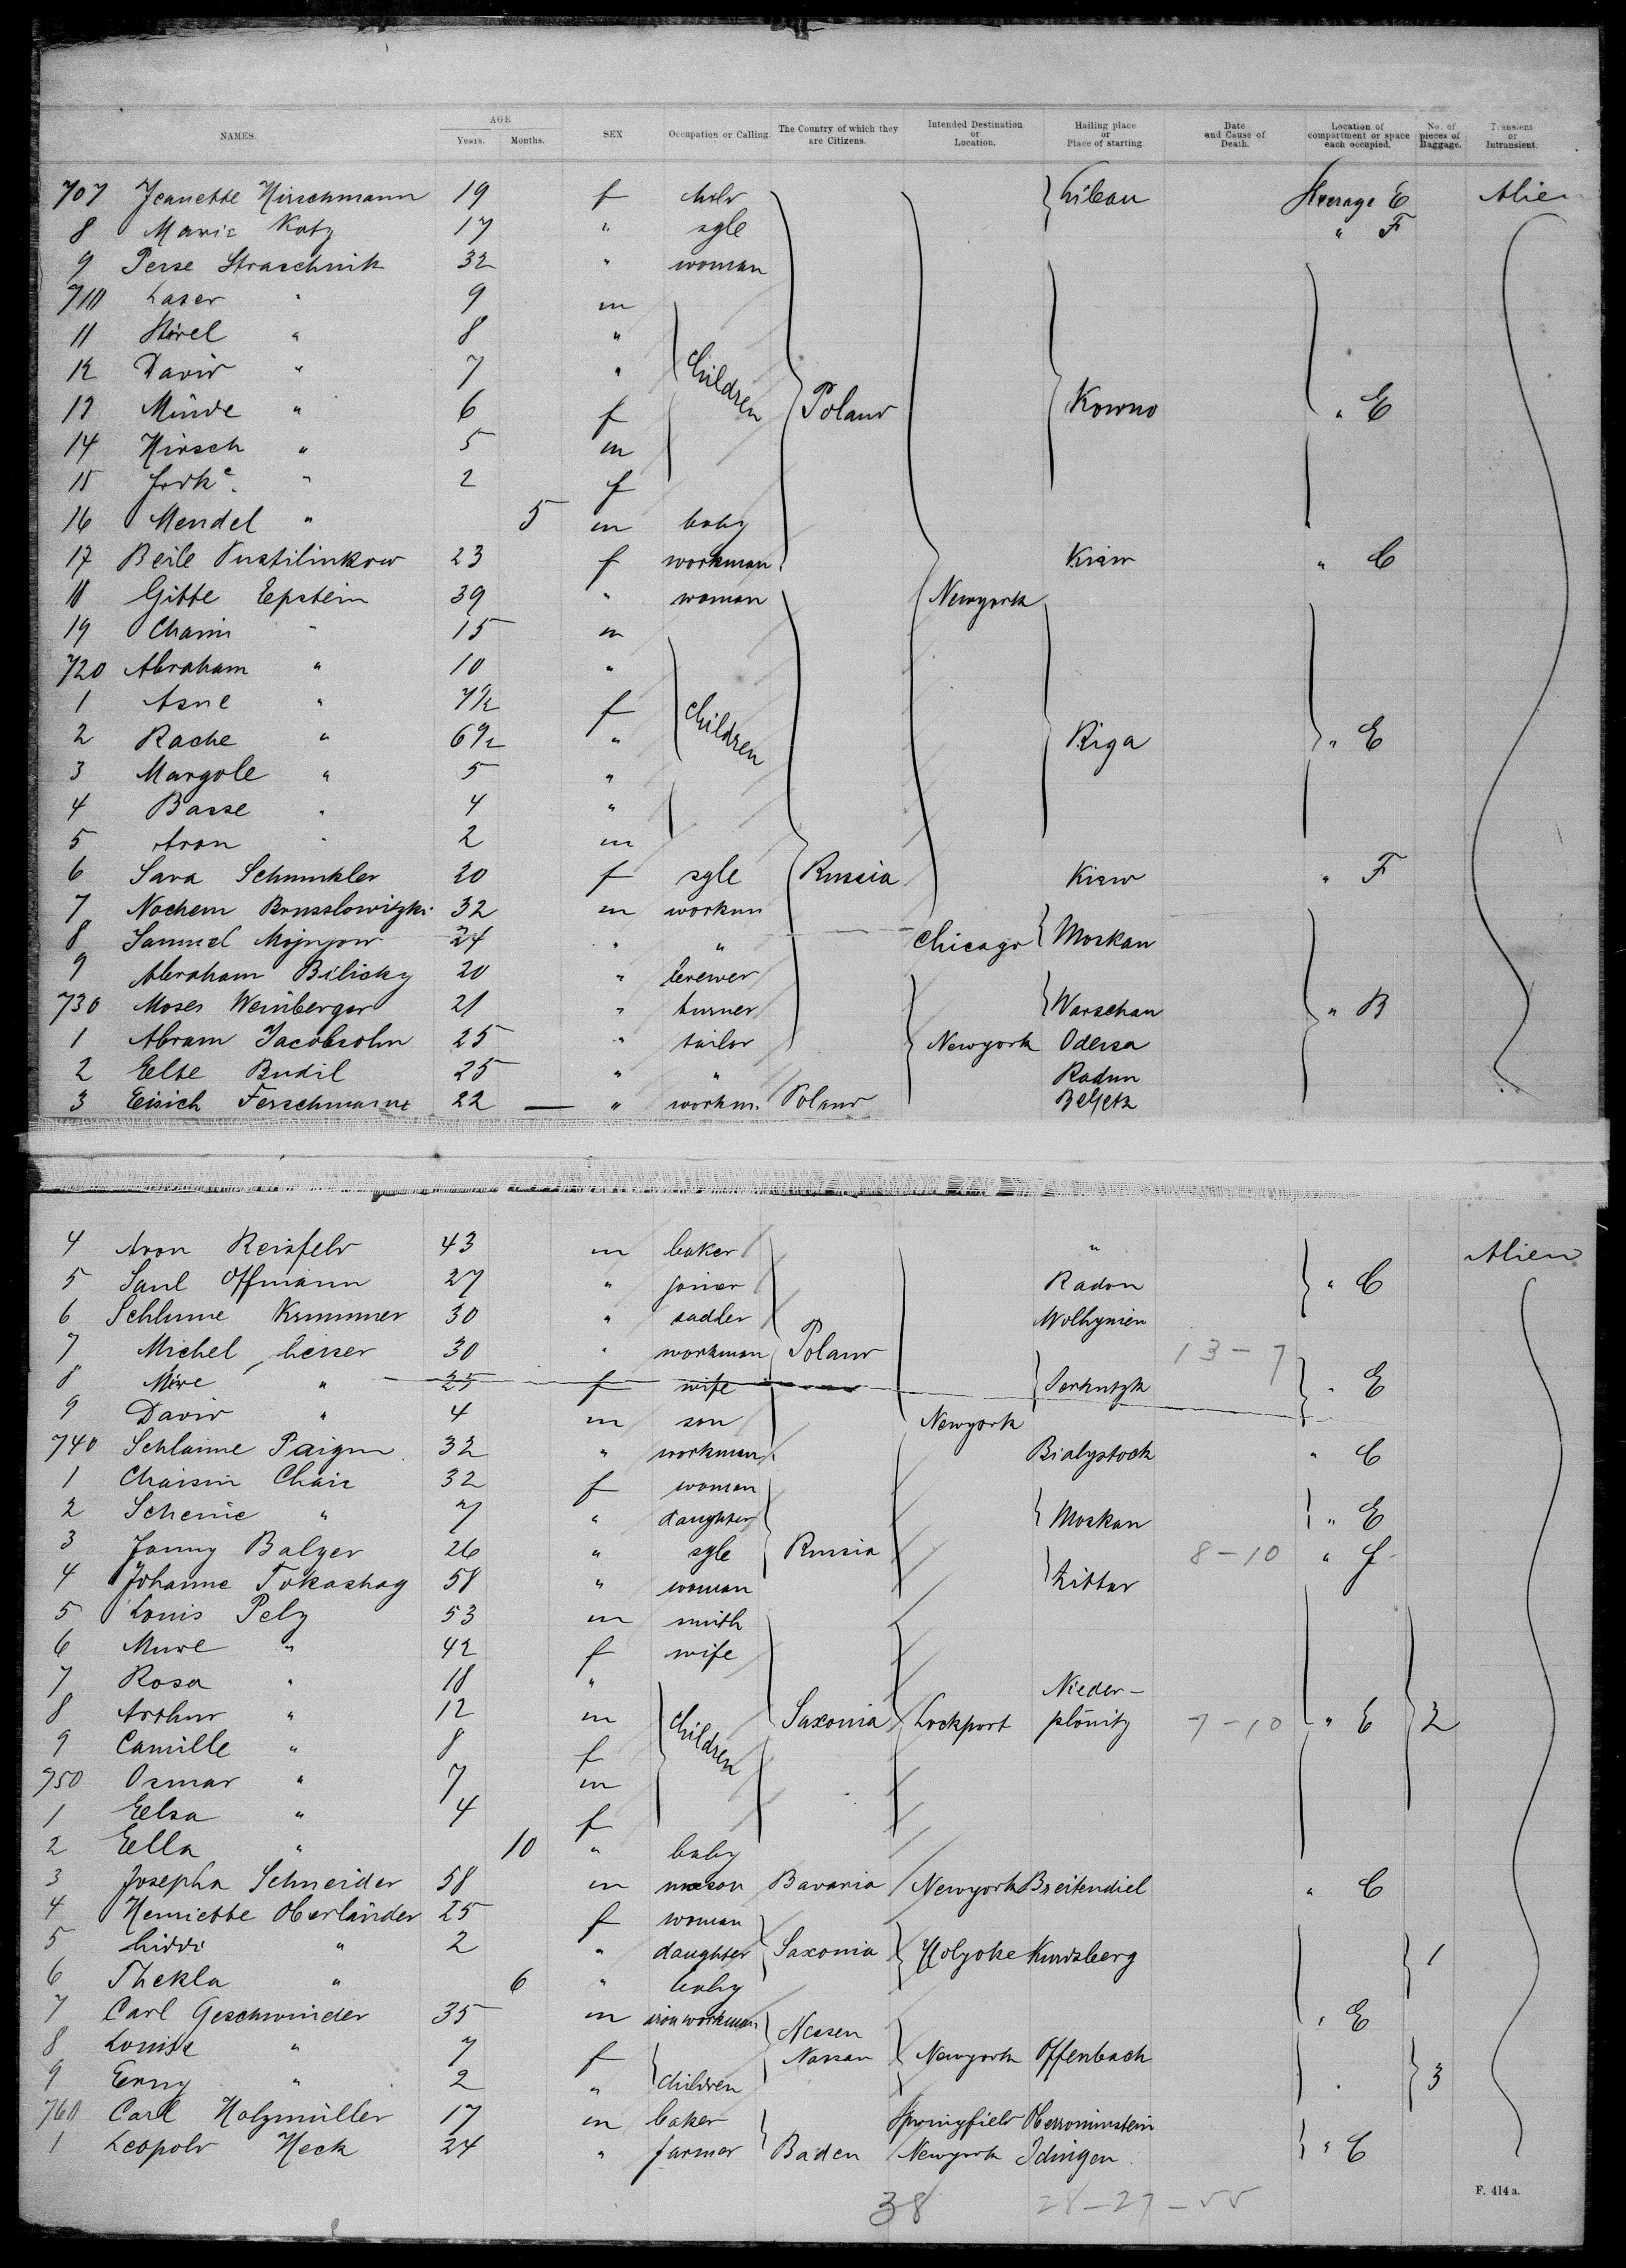 NAMES. AGE Years. Months. SEX Occupation or Calling. The Country of which they are Citizens. Intended Destination or Location. Hailing place or Place of starting. Date and Cause of Death. Location of compartment or space each occupied. No. of pieces of Baggage. Transient or Intransient.
707 Jeanette Hirschmann 19 f Libau Steerage E Alien
8 Marie Katz 17 " sgle " F
9 Perse Straschnik 32 " woman
710 Laser " 9 m
11 " 8 "
12 David " 7 " Children
13 Minde " 6 f Poland Kowno " E
14 Hirsch " 5 m
15 " 2 f
16 Mendel " 5 m baby
17 Beile Pustilinkow 23 f workman Kiew " C
18 Gitte Epstein 39 " woman Newyork
19 Chaim " 15 m
720 Abraham " 10 "
1 Asne " 7½ f Children
2 Rache " 6½ " Riga " E
3 Margole " 5 "
4 Basse " 4 "
5 Aron " 2 m
6 Sara Schmukler 20 f sgle Russia Kiew " F
7 Nochem Brusslowitzki 32 m workm
8 Samuel 24 " " Chicago Moskau
9 Abraham Bilicky 20 " brewer
730 Moses Weinberger 21 " turner Warschau " B
1 Abram Jacobsohn 25 " tailor Newyork Odessa
2 Else Budil 25 " " Radun
3 Eisich 22 — " workm. Poland
4 Aron Reisfeld 43 m baker " Alien
5 Saul Offmann 27 " joiner Radon " C
6 Schlume Krummer 30 " sadler Wolhynien
7 Michel Leiser 30 " workman Poland 13-7
8 Mire " 25 f wife " E
9 David " 4 m son Newyork
740 Schlaime Paigun 32 " workman Bialystock " C
1 Chaisin Chaie 32 f woman
2 Scheine " 7 " daughter Moskau " E
3 Fanny Balzer 26 " sgle Russia 8-10 " f
4 Johanne Tokashag 58 " woman Zittau
5 Louis Pelz 53 m smith
6 " 42 f wife
7 Rosa " 18 " Nieder-
8 Arthur " 12 m Children Saxonia Lockport plönitz 7-10 " E 2
9 Camille " 8 f
750 Osmar " 7 m
1 Elsa " 4 f
2 Ella " 10 " baby
3 Josepha Schneider 58 m mason Bavaria Newyork Breitendiel " C
4 Henriette Oberländer 25 f woman
5 Liddi " 2 " daughter Saxonia Holyoke Kundsberg 1
6 Thekla " 6 " baby
7 Carl Geschwinder 35 m iron workman Hessen " E
8 Louise " 7 f Nassau Newyork Offenbach
9 Erny " 2 " Children 3
760 Carl Holzmüller 17 m baker Springfield
1 Leopold Heck 24 " farmer Baden Newyork Idingen " C
38 28-27-55
F. 414 a.